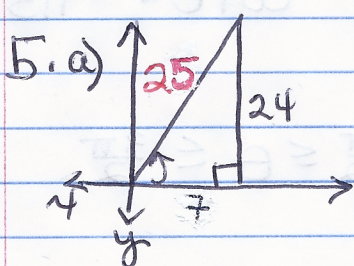 5. a)
25
24
7
y